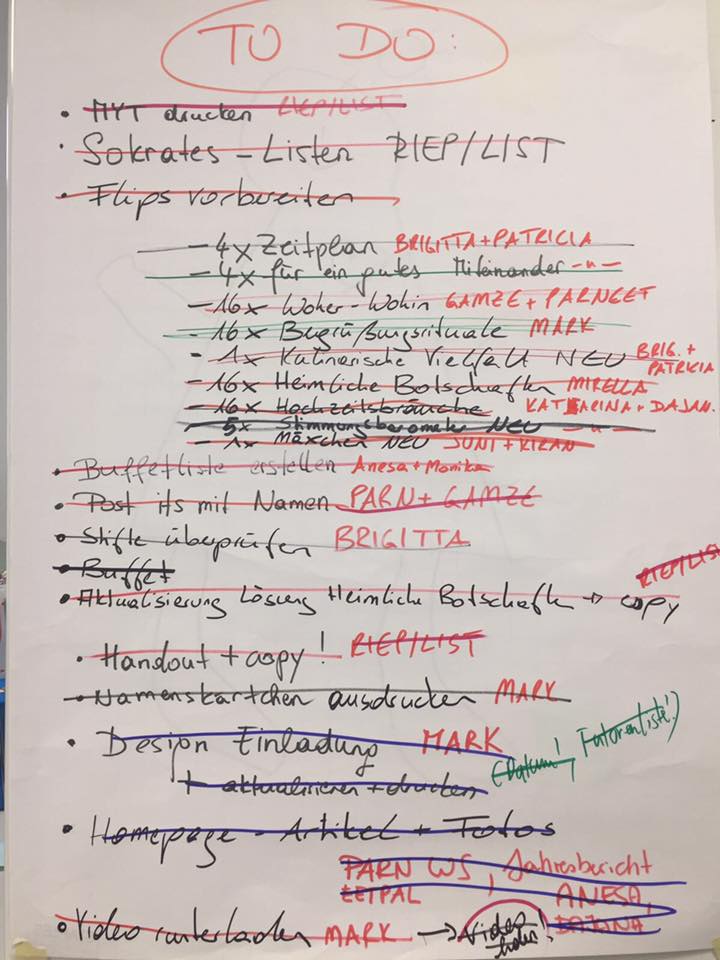 TO DO:
• MYT drucken RIEP/LIST
• Sokrates - Listen RIEP/LIST
• Flips vorbereiten
- 4x Zeitplan BRIGITTA + PATRICIA
- 4x für ein gutes Miteinander - " -
- 16x Woher - Wohin GAMZE + PARNEET
- 16x Begrüßungsrituale MARK
- 1x Kulinarische Vielfalt NEU BRIG. + PATRICIA
- 16x Heimliche Botschaften MIRELLA
- 16x Hochzeitsbräuche KATHARINA + DAJAN.
- 5x Stimmungsbarometer NEU - " -
- 1x Märchen NEU JUNI + KIRAN
• Buffetliste erstellen Anesa + Monika
• Post its mit Namen PARN + GAMZE
• Stifte überprüfen BRIGITTA
• Buffet
• Aktualisierung Lösung Heimliche Botschaften → copy RIEP/LIST
• Handout + copy! RIEP/LIST
• Namenskärtchen ausdrucken MARK
• Design Einladung MARK
aktualisieren + drucken (Datum!, Tutorenliste!)
• Homepage - Artikel + Fotos
PARN WS, Jahresbericht
ZEIPAL ANESA,
• Video runterladen MARK → Video holen! DAJANA